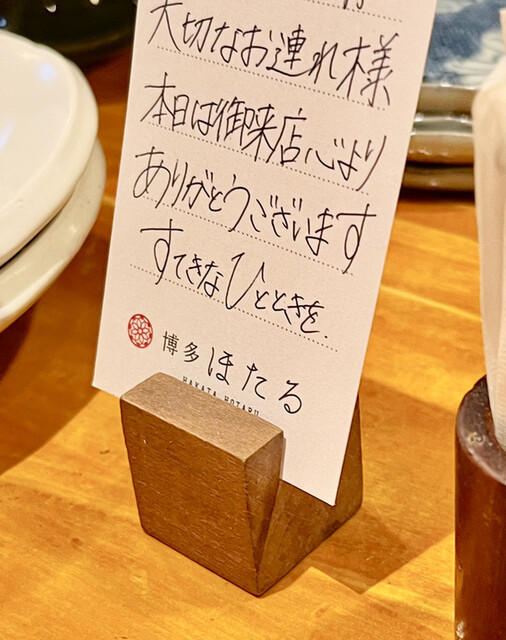 大切なお連れ様
本日は御来店心より
ありがとうございます
すてきなひとときを.
博多 ほたる
HAKATA HOTARU